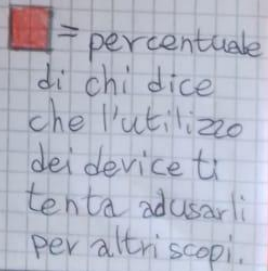 = percentuale
di chi dice
che l'utilizzo
dei device ti
tenta adusarli
per altri scopi.